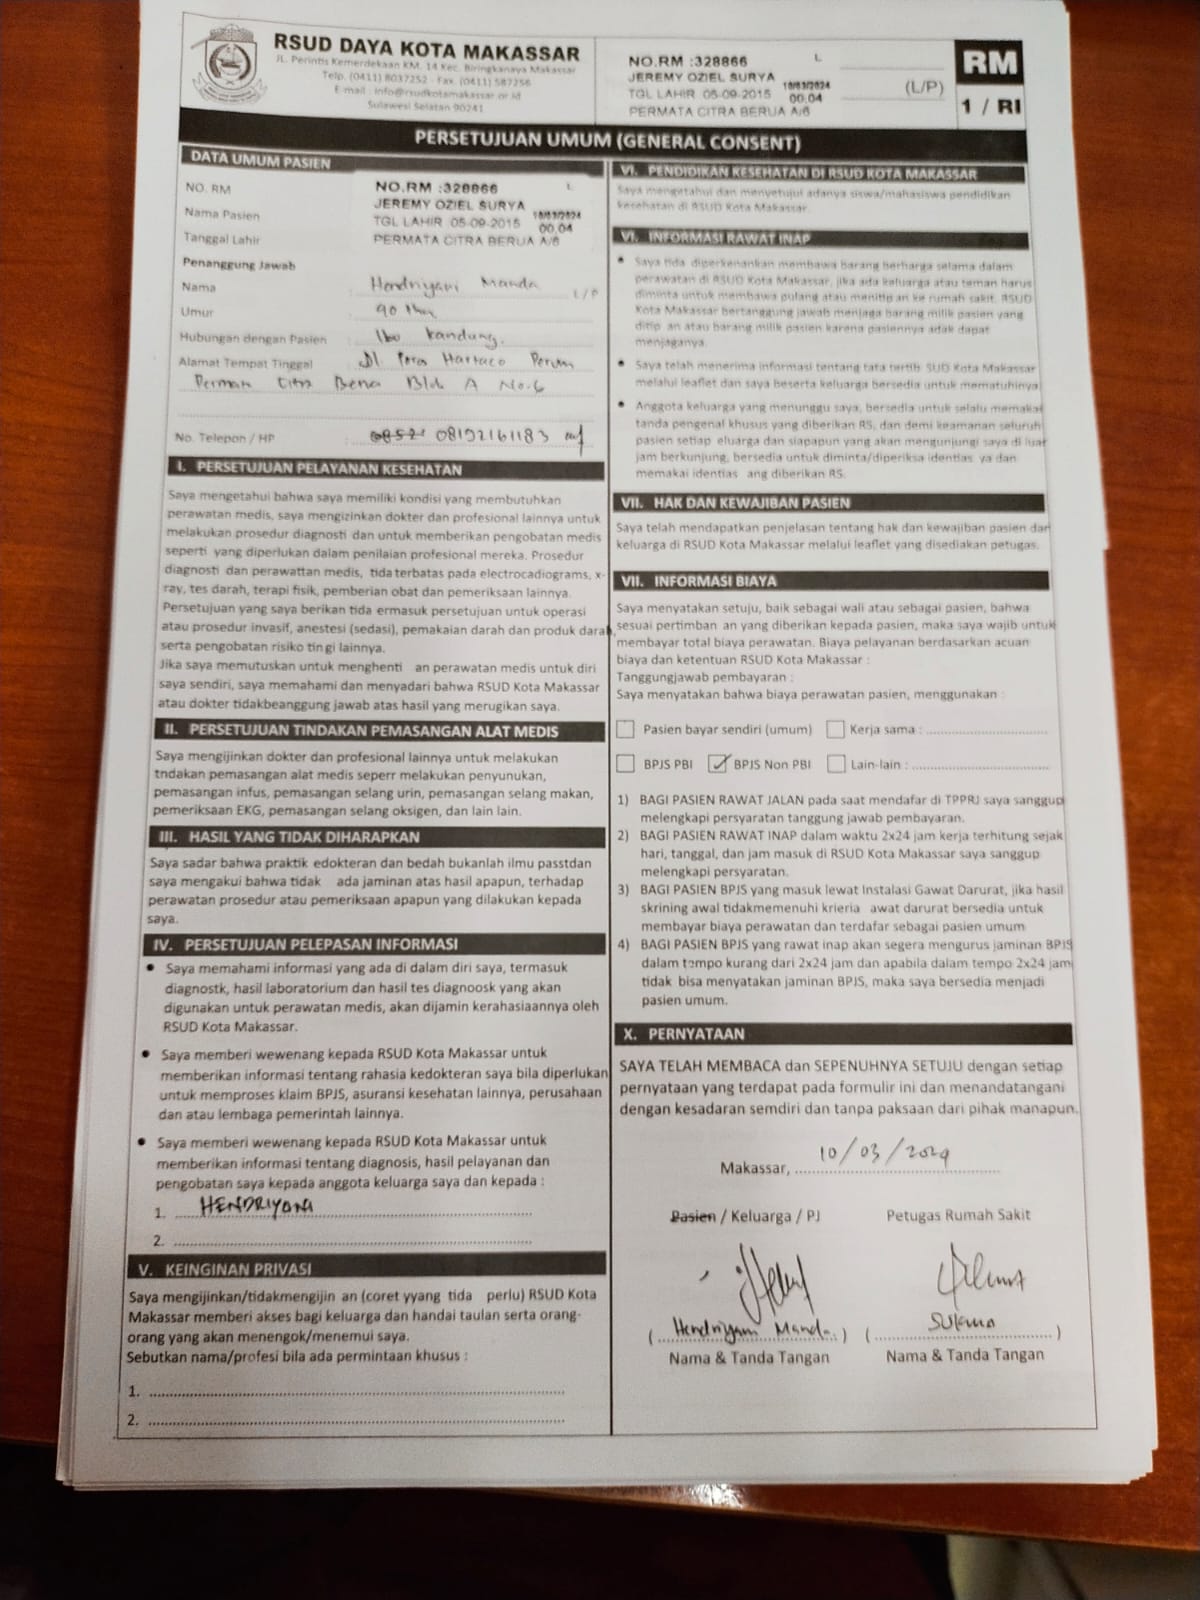 RSUD DAYA KOTA MAKASSAR
JL. Perintis Kemerdekaan KM. 14 Kec. Biringkanaya Makassar
Telp. (0411) 8037252 - Fax. (0411) 587256
E-mail : info@rsudkotamakassar.or.id
Sulawesi Selatan 90241
NO.RM :328866 L
JEREMY OZIEL SURYA
TGL LAHIR 05-09-2015 10/03/2024 00.04
PERMATA CITRA BERUA A/6
(L/P)
RM
1 / RI
PERSETUJUAN UMUM (GENERAL CONSENT)
DATA UMUM PASIEN
NO. RM
Nama Pasien
Tanggal Lahir
NO.RM :328866 L
JEREMY OZIEL SURYA
TGL LAHIR 05-09-2015 10/03/2024 00.04
PERMATA CITRA BERUA A/6
Penanggung Jawab
Nama : Hendriyani Manda L/P
Umur :
Hubungan dengan Pasien : Ibu kandung.
Alamat Tempat Tinggal : Jl. Poros Hartaco Perum
Citra Blok A No.6
No. Telepon / HP : 08152161183
I. PERSETUJUAN PELAYANAN KESEHATAN
Saya mengetahui bahwa saya memiliki kondisi yang membutuhkan
perawatan medis, saya mengizinkan dokter dan profesional lainnya untuk
melakukan prosedur diagnosti dan untuk memberikan pengobatan medis
seperti yang diperlukan dalam penilaian profesional mereka. Prosedur
diagnosti dan perawattan medis, tida terbatas pada electrocadiograms, x-
ray, tes darah, terapi fisik, pemberian obat dan pemeriksaan lainnya.
Persetujuan yang saya berikan tida ermasuk persetujuan untuk operasi
atau prosedur invasif, anestesi (sedasi), pemakaian darah dan produk darah,
serta pengobatan risiko tin gi lainnya.
Jika saya memutuskan untuk menghenti an perawatan medis untuk diri
saya sendiri, saya memahami dan menyadari bahwa RSUD Kota Makassar
atau dokter tidakbeanggung jawab atas hasil yang merugikan saya.
II. PERSETUJUAN TINDAKAN PEMASANGAN ALAT MEDIS
Saya mengijinkan dokter dan profesional lainnya untuk melakukan
tndakan pemasangan alat medis seperr melakukan penyunukan,
pemasangan infus, pemasangan selang urin, pemasangan selang makan,
pemeriksaan EKG, pemasangan selang oksigen, dan lain lain.
III. HASIL YANG TIDAK DIHARAPKAN
Saya sadar bahwa praktik edokteran dan bedah bukanlah ilmu passtdan
saya mengakui bahwa tidak ada jaminan atas hasil apapun, terhadap
perawatan prosedur atau pemeriksaan apapun yang dilakukan kepada
saya.
IV. PERSETUJUAN PELEPASAN INFORMASI
• Saya memahami informasi yang ada di dalam diri saya, termasuk
diagnostk, hasil laboratorium dan hasil tes diagnoosk yang akan
digunakan untuk perawatan medis, akan dijamin kerahasiaannya oleh
RSUD Kota Makassar.
• Saya memberi wewenang kepada RSUD Kota Makassar untuk
memberikan informasi tentang rahasia kedokteran saya bila diperlukan
untuk memproses klaim BPJS, asuransi kesehatan lainnya, perusahaan
dan atau lembaga pemerintah lainnya.
• Saya memberi wewenang kepada RSUD Kota Makassar untuk
memberikan informasi tentang diagnosis, hasil pelayanan dan
pengobatan saya kepada anggota keluarga saya dan kepada :
1. HENDRIYANI
2.
V. KEINGINAN PRIVASI
Saya mengijinkan/tidakmengijin an (coret yyang tida perlu) RSUD Kota
Makassar memberi akses bagi keluarga dan handai taulan serta orang-
orang yang akan menengok/menemui saya.
Sebutkan nama/profesi bila ada permintaan khusus :
1.
2.
VI. PENDIDIKAN KESEHATAN DI RSUD KOTA MAKASSAR
Saya mengetahui dan menyetujui adanya siswa/mahasiswa pendidikan
kesehatan di RSUD Kota Makassar.
VI. INFORMASI RAWAT INAP
• Saya tida diperkenankan membawa barang berharga selama dalam
perawatan di RSUD Kota Makassar, jika ada keluarga atau teman harus
diminta untuk membawa pulang atau menitip an ke rumah sakit. RSUD
Kota Makassar bertanggung jawab menjaga barang milik pasien yang
ditip an atau barang milik pasien karena pasiennya adak dapat
menjaganya.
• Saya telah menerima informasi tentang tata tertib SUD Kota Makassar
melalui leaflet dan saya beserta keluarga bersedia untuk mematuhinya
• Anggota keluarga yang menunggu saya, bersedia untuk selalu memakai
tanda pengenal khusus yang diberikan RS, dan demi keamanan seluruh
pasien setiap eluarga dan siapapun yang akan mengunjungi saya di luar
jam berkunjung, bersedia untuk diminta/diperiksa identias ya dan
memakai identias ang diberikan RS.
VII. HAK DAN KEWAJIBAN PASIEN
Saya telah mendapatkan penjelasan tentang hak dan kewajiban pasien dan
keluarga di RSUD Kota Makassar melalui leaflet yang disediakan petugas.
VII. INFORMASI BIAYA
Saya menyatakan setuju, baik sebagai wali atau sebagai pasien, bahwa
sesuai pertimban an yang diberikan kepada pasien, maka saya wajib untuk
membayar total biaya perawatan. Biaya pelayanan berdasarkan acuan
biaya dan ketentuan RSUD Kota Makassar :
Tanggungjawab pembayaran :
Saya menyatakan bahwa biaya perawatan pasien, menggunakan :
Pasien bayar sendiri (umum) Kerja sama :
BPJS PBI ✓ BPJS Non PBI Lain-lain :
1) BAGI PASIEN RAWAT JALAN pada saat mendafar di TPPRJ saya sanggup
melengkapi persyaratan tanggung jawab pembayaran.
2) BAGI PASIEN RAWAT INAP dalam waktu 2x24 jam kerja terhitung sejak
hari, tanggal, dan jam masuk di RSUD Kota Makassar saya sanggup
melengkapi persyaratan.
3) BAGI PASIEN BPJS yang masuk lewat Instalasi Gawat Darurat, jika hasil
skrining awal tidakmemenuhi krieria awat darurat bersedia untuk
membayar biaya perawatan dan terdafar sebagai pasien umum
4) BAGI PASIEN BPJS yang rawat inap akan segera mengurus jaminan BPJS
dalam tempo kurang dari 2x24 jam dan apabila dalam tempo 2x24 jam
tidak bisa menyatakan jaminan BPJS, maka saya bersedia menjadi
pasien umum.
X. PERNYATAAN
SAYA TELAH MEMBACA dan SEPENUHNYA SETUJU dengan setiap
pernyataan yang terdapat pada formulir ini dan menandatangani
dengan kesadaran semdiri dan tanpa paksaan dari pihak manapun.
Makassar, 10/03/2024
Pasien / Keluarga / PJ Petugas Rumah Sakit
( Hendriyani Manda ) ( Sukma )
Nama & Tanda Tangan Nama & Tanda Tangan